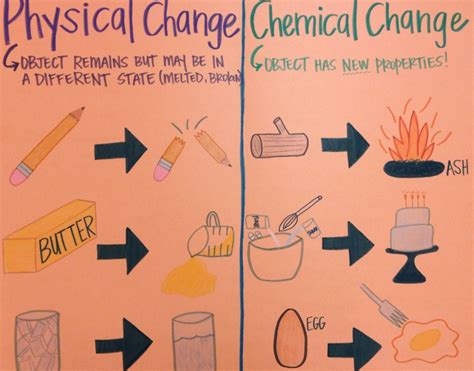 Physical Change
OBJECT REMAINS BUT MAY BE IN
A DIFFERENT STATE (MELTED, BROKEN)
BUTTER
Chemical Change
OBJECT HAS NEW PROPERTIES!
ASH
EGG